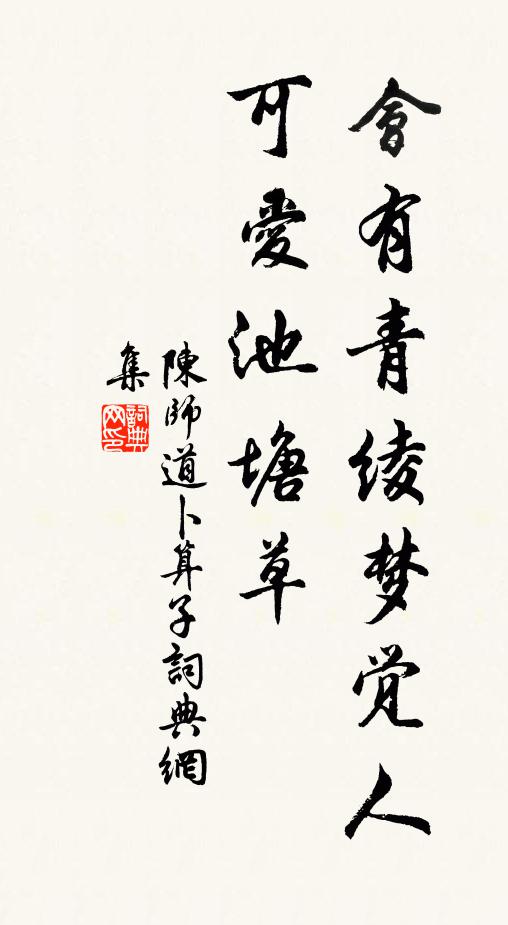 會有青綾梦觉人
可愛池塘草
陳師道卜算子詞典網
集
詞典
网印